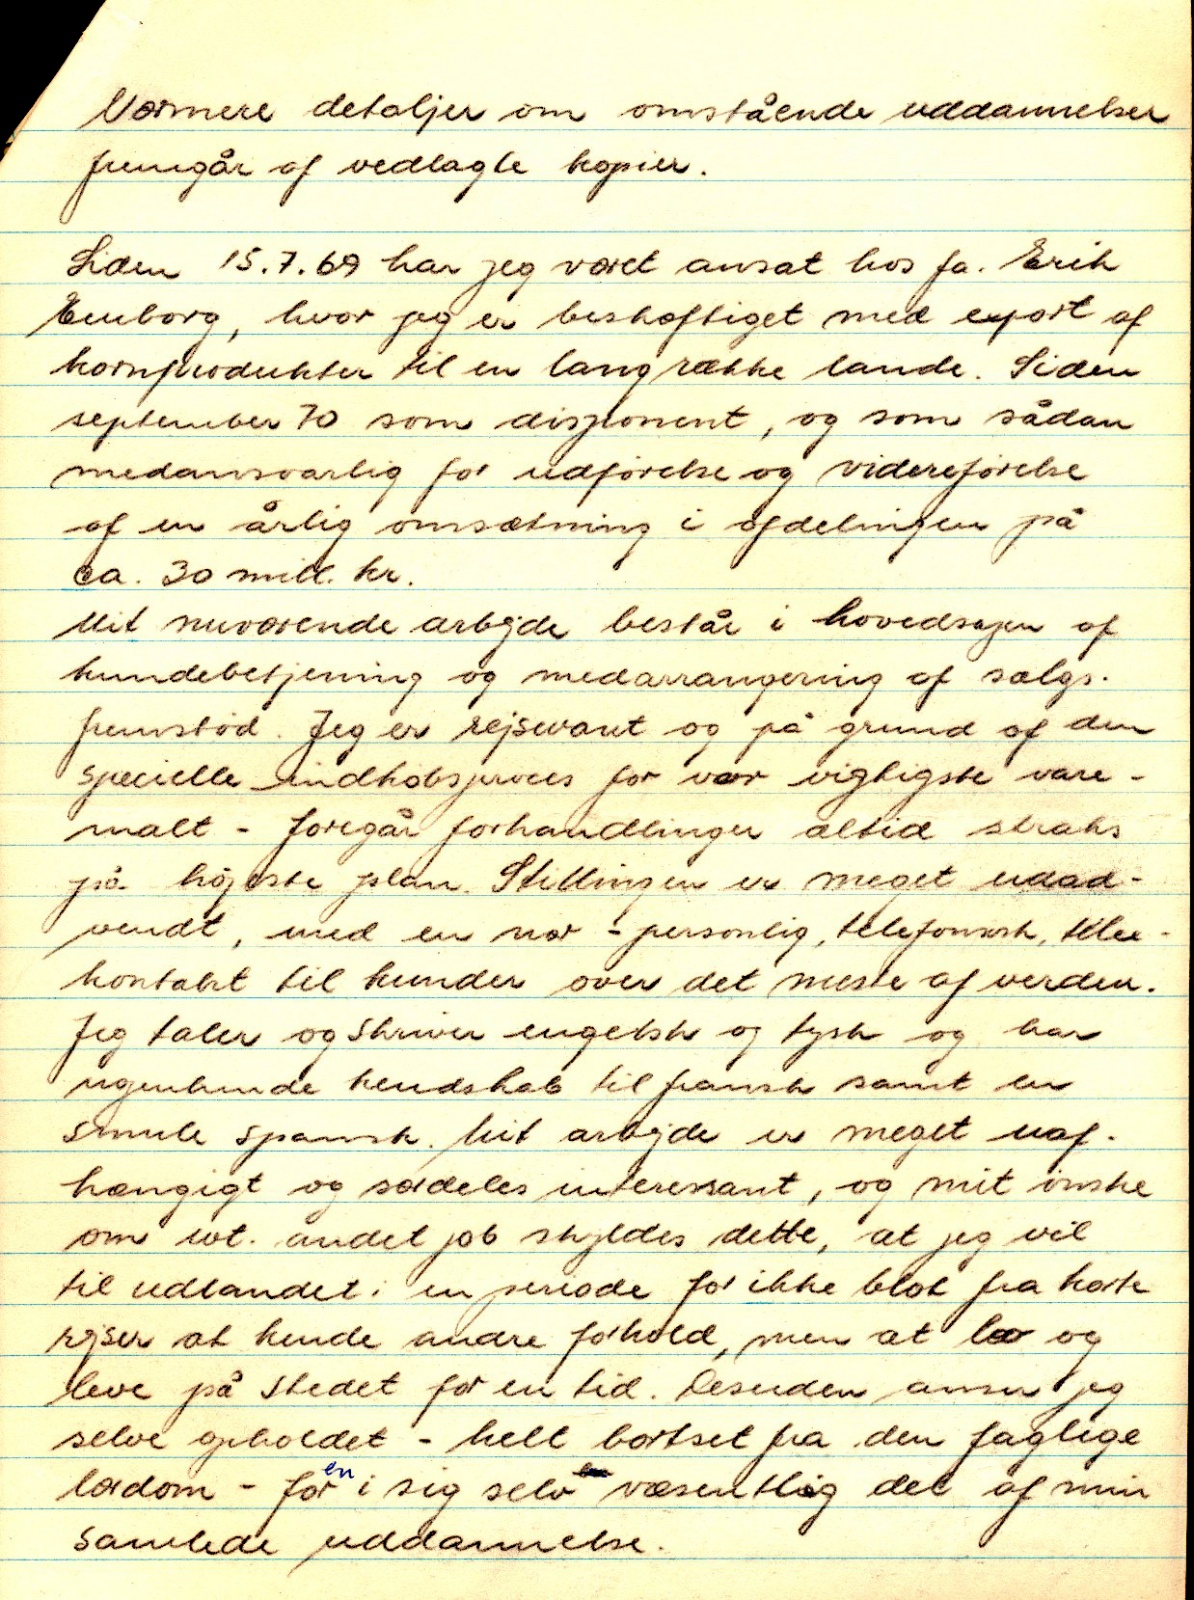 Nærmere detaljer om omstående uddannelser
fremgår af vedlagte kopier.
Siden 15.7.69 har jeg været ansat hos fa. Erik
Emborg, hvor jeg er beskæftiget med export af
kornprodukter til en lang række lande. Siden
september 70 som disponent, og som sådan
medansvarlig for udførelse og videreførelse
af en årlig omsætning i afdelingen på
ca. 30 mill. kr.
Mit nuværende arbejde består i hovedsagen af
kundebetjening og medarrangering af salgs-
fremstød. Jeg er rejsevant og på grund af den
specielle indkøbsproces for vor vigtigste vare -
malt - foregår forhandlinger altid straks
på højeste plan. Stillingen er meget udad-
vendt, med en nær - personlig, telefonisk, telex -
kontakt til kunder over det meste af verden.
Jeg taler og skriver engelsk og tysk og har
indgående kendskab til fransk samt en
smule spansk. Mit arbejde er meget uaf-
hængigt og særdeles interessant, og mit ønske
om evt. andet job skyldes dette, at jeg vil
til udlandet i en periode for ikke blot fra korte
rejser at kende andre forhold, men at bo og
leve på stedet for en tid. Desuden anser jeg
selve opholdet - helt bortset fra den faglige
lærdom - for en i sig selv væsentlig del af min
samlede uddannelse.